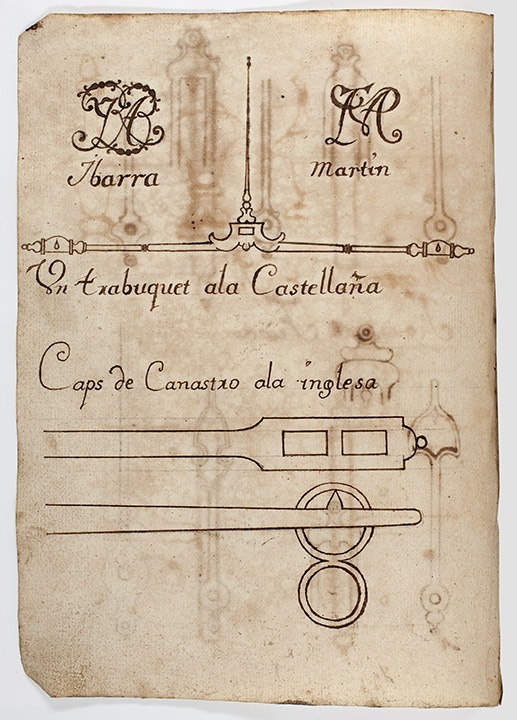 Ibarra
Martin
Vn trabuquet ala Castellaña
Caps de Canastro ala inglesa